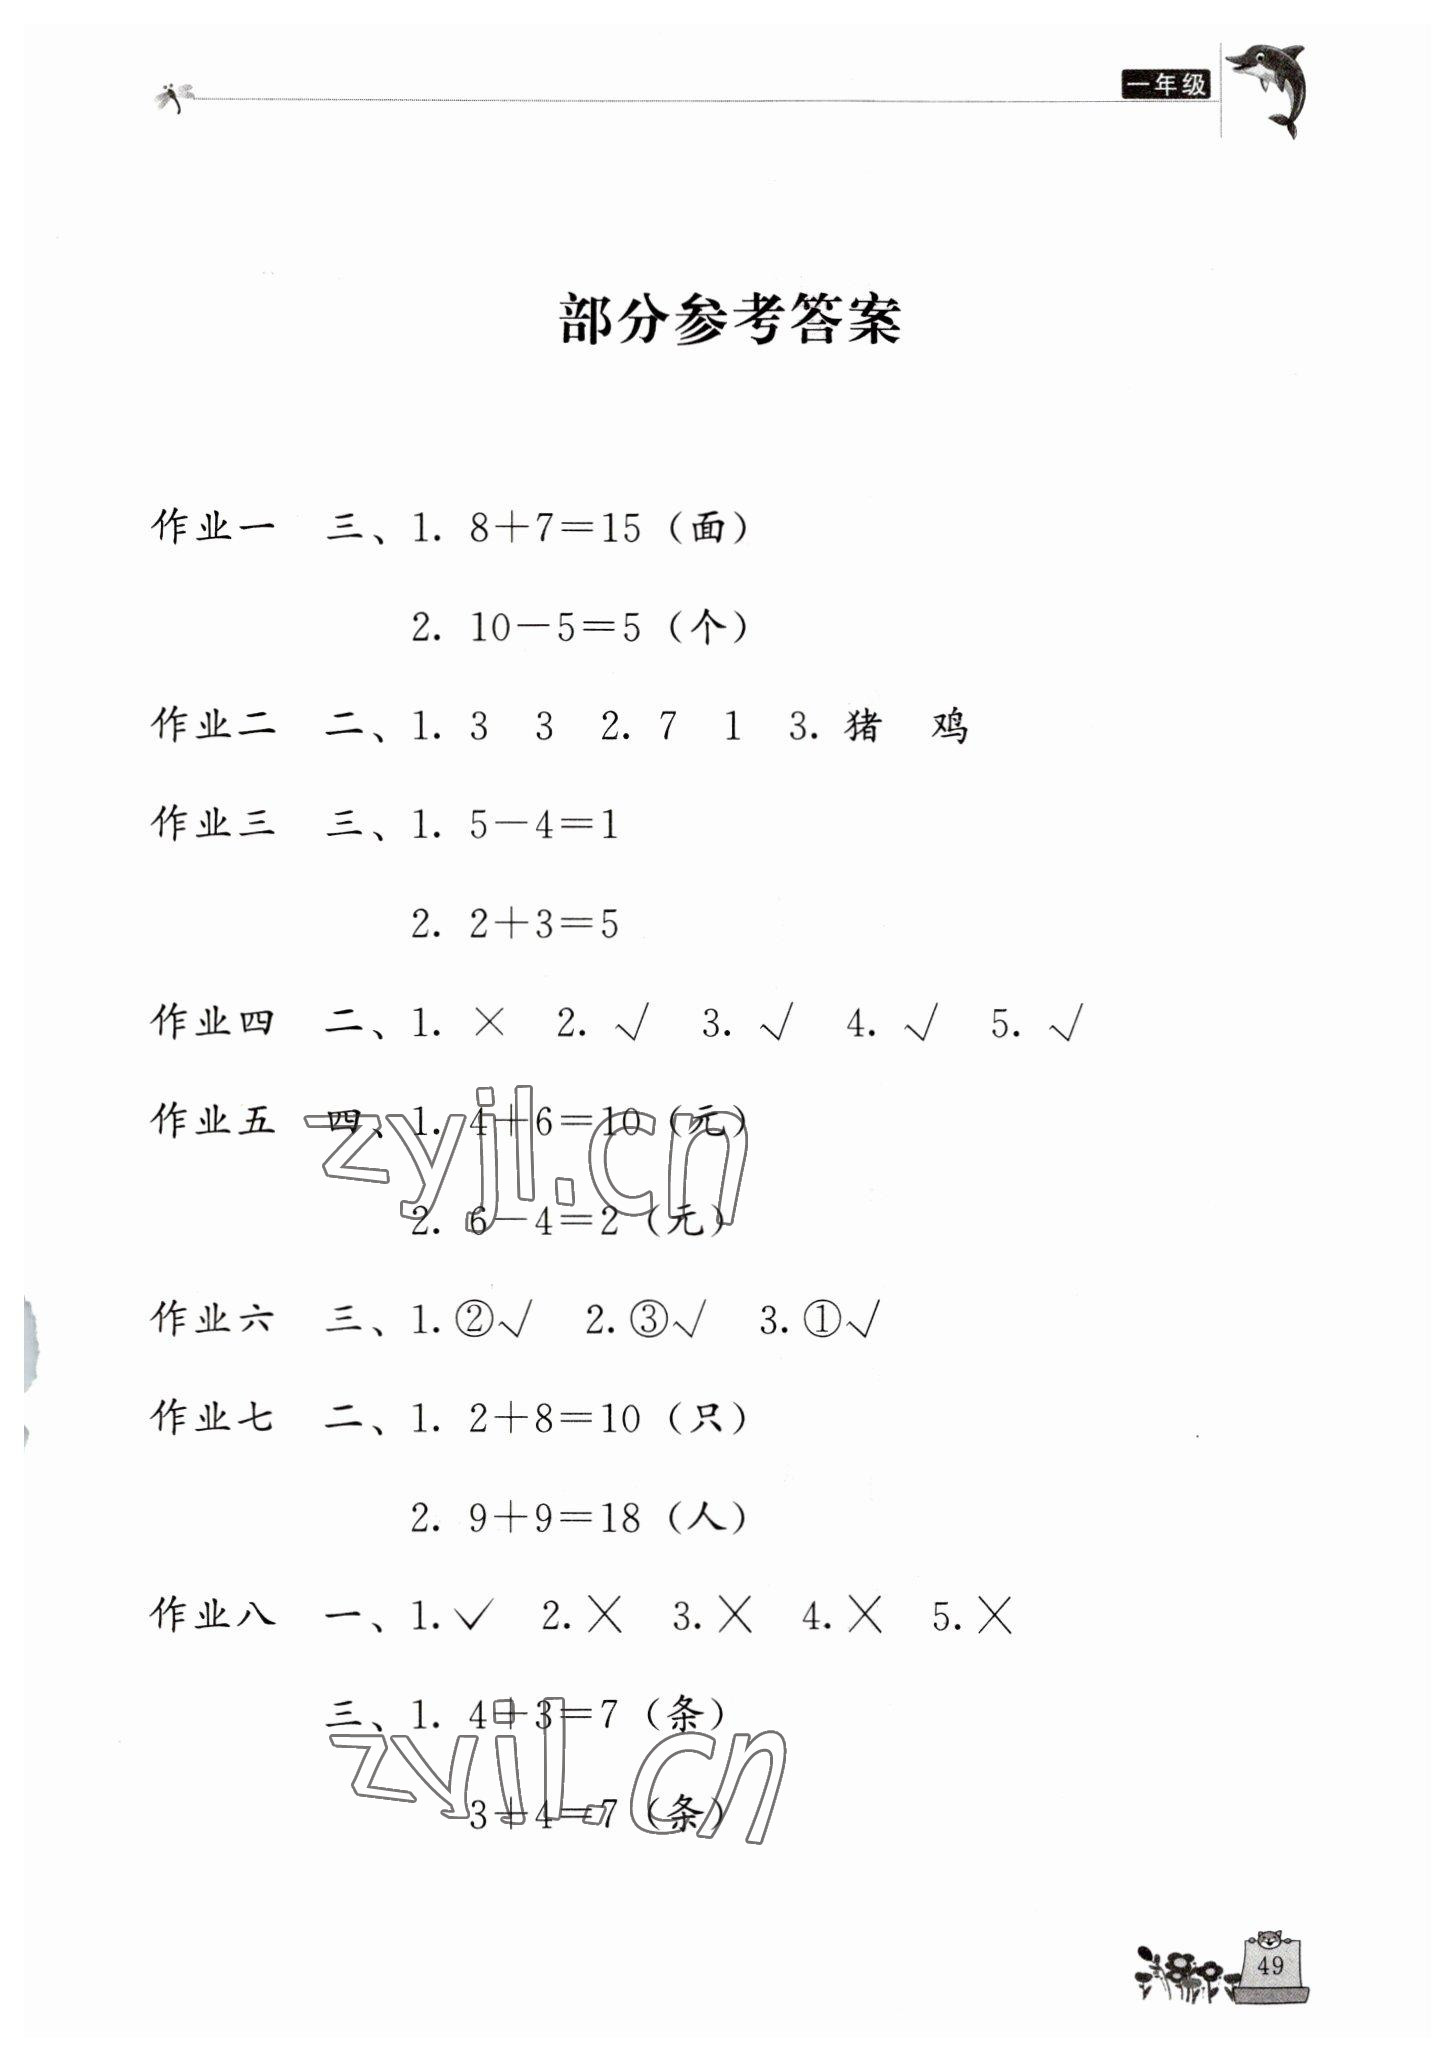 一年级
部分参考答案
作业一 三、1. 8+7=15（面）
2. 10-5=5（个）
作业二 二、1. 3 3 2. 7 1 3. 猪 鸡
作业三 三、1. 5-4=1
2. 2+3=5
作业四 二、1. × 2. √ 3. √ 4. √ 5. √
作业五 四、1. 4+6=10（元）
zyjl.cn
2. 6-4=2（元）
作业六 三、1.②√ 2.③√ 3.①√
作业七 二、1. 2+8=10（只）
2. 9+9=18（人）
作业八 一、1.✓ 2.× 3.× 4.× 5.×
三、1. 4+3=7（条）
zyjl.cn
3+4=7（条）
49